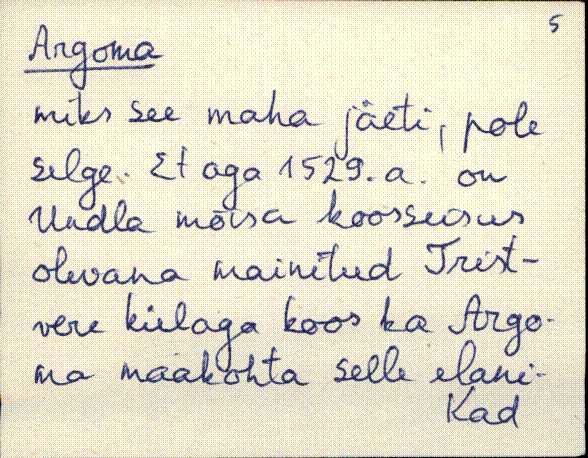 5
Argoma
miks see maha jäeti, pole
selge. Et aga 1529. a. on
Undla mõisa koosseisus
olevana mainitud Trist-
vere külaga koos ka Argo-
ma maakohta selle elani-
kad